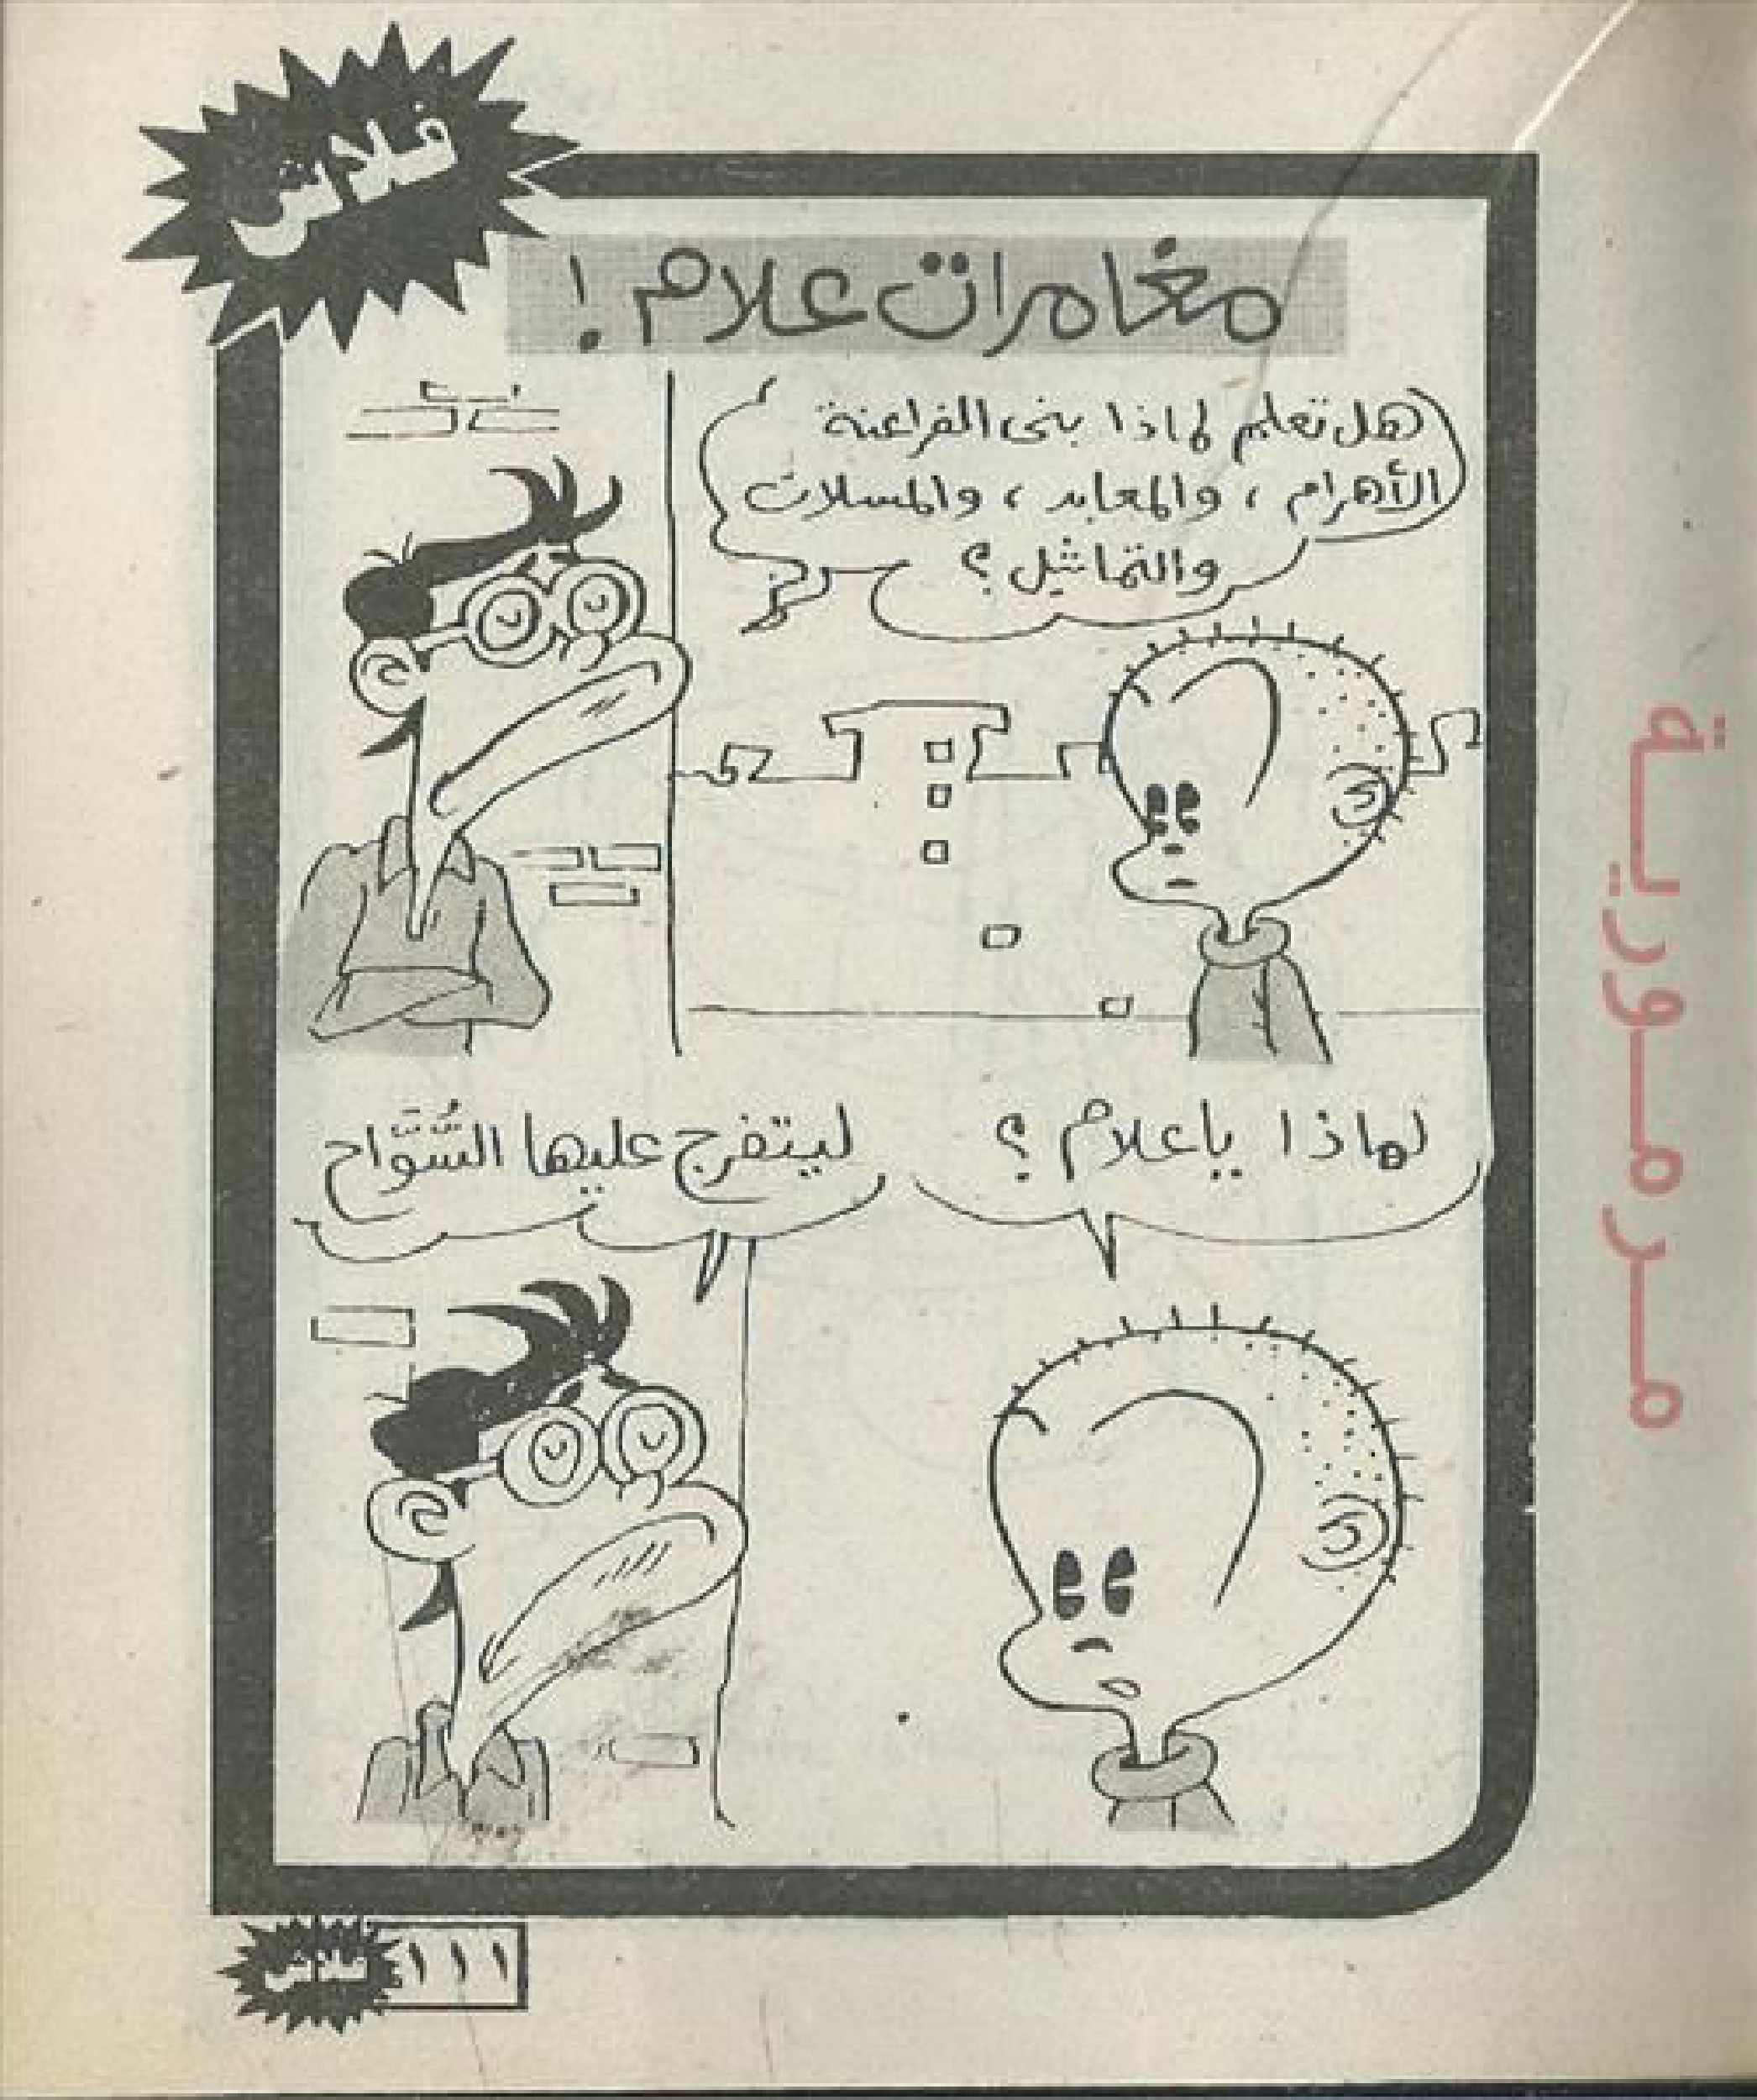 فلاش
مغامرات علام !
هل تعلم لماذا بنى الفراعنة
الأهرام ، والمعابد ، والمسلات
والتماثيل ؟
لماذا ياعلام ؟
ليتفرج عليها السُّوَّاح
مرمورية
١١١
فلاش